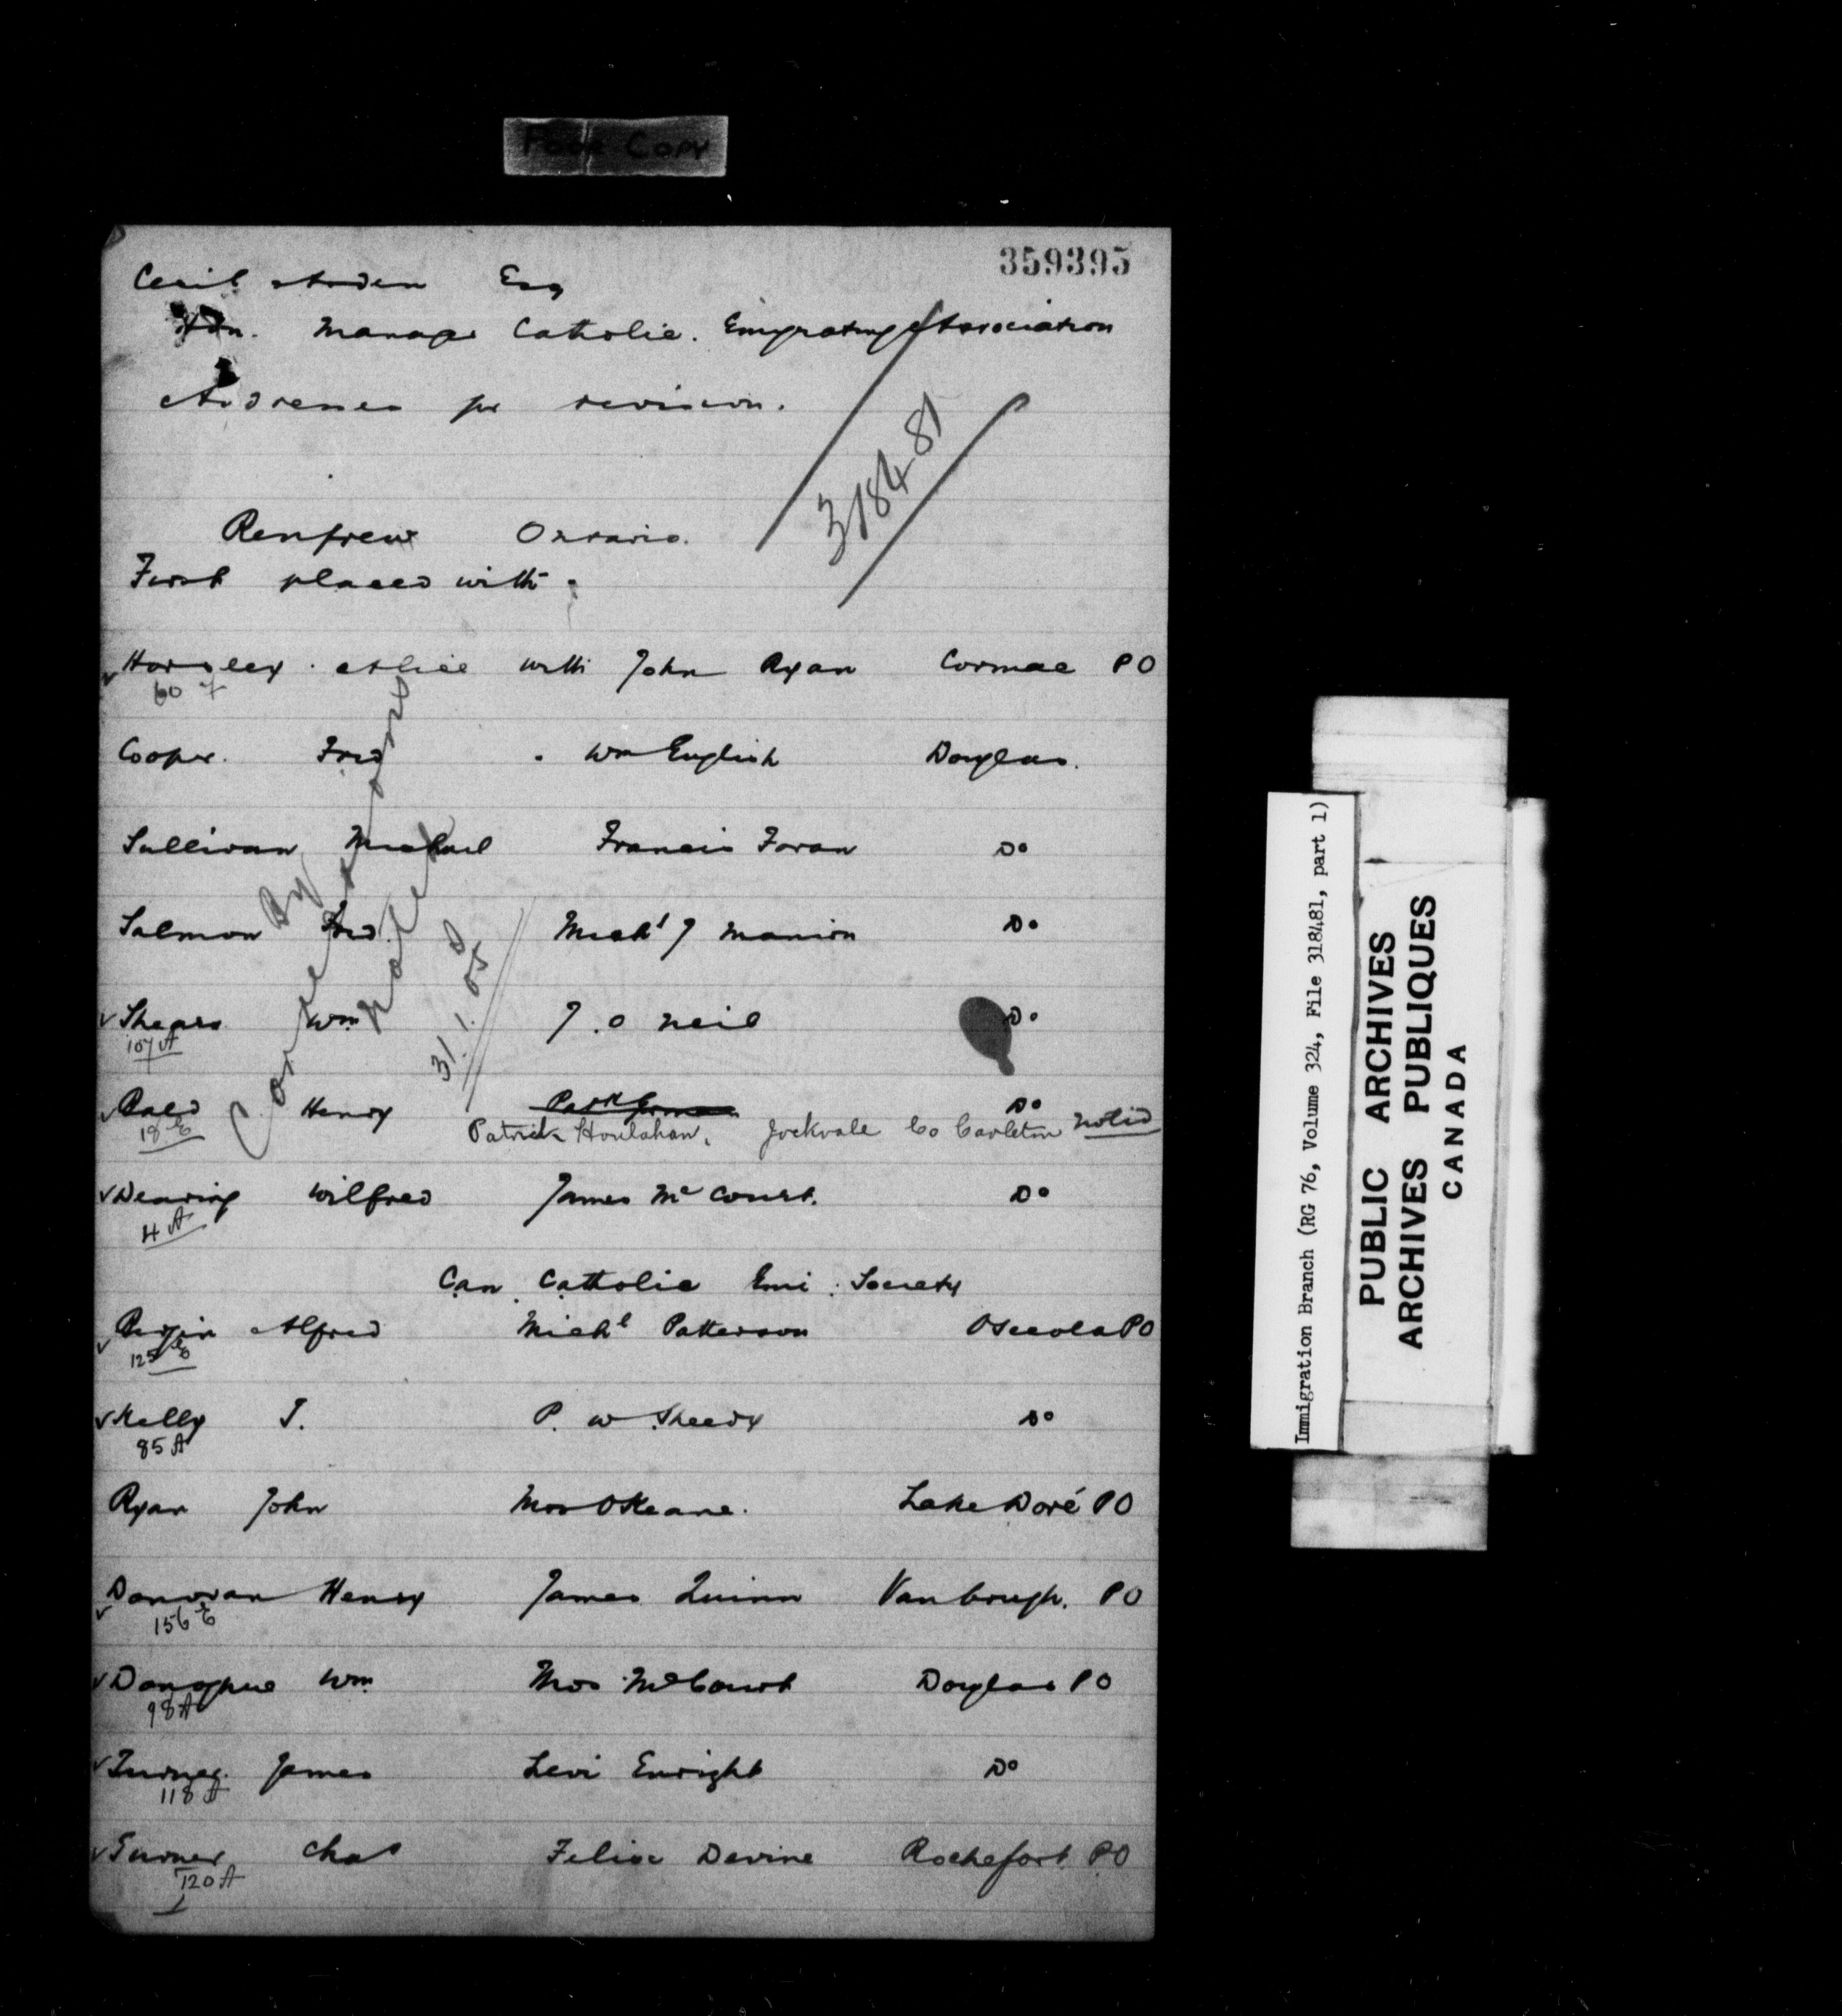 Poor Copy
359395
Cecil Arden Esq
Hon. Manager Catholic. Emigrating Association
Addresses for revision.
318481
Renfrew Ontario.
First placed with
Horsley. Alice with John Ryan Cormac PO
60
Cooper. Fred . Wm English Douglas.
Sullivan Michael Francis Foran Do
Salmon Fred. Michl J Manion Do
Shears Wm J. O Neil Do
107 A
Henry Patk Do
18 E Patrick Houlahan, Jockvale Co Carleton noted
Dearing Wilfred James Mc Court. Do
4 A
Can. Catholic Emi. Society
Alfred Michl Patterson Osceola PO
125 E
Kelly T. P. W Sheedy Do
85 A
Ryan John Mrs O Keane. Lake Doré PO
Donovan Henry James Quinn Vanbrugh. PO
156 E
Donoghue Wm Mrs McCourt Douglas PO
98 A
Turner. James Levi Enright Do
118 A
Turner Chas Felix Devine Rochefort PO
120 A
By
noted
31.1.05
Immigration Branch (RG 76, Volume 324, File 318481, part 1)
PUBLIC ARCHIVES
ARCHIVES PUBLIQUES
CANADA